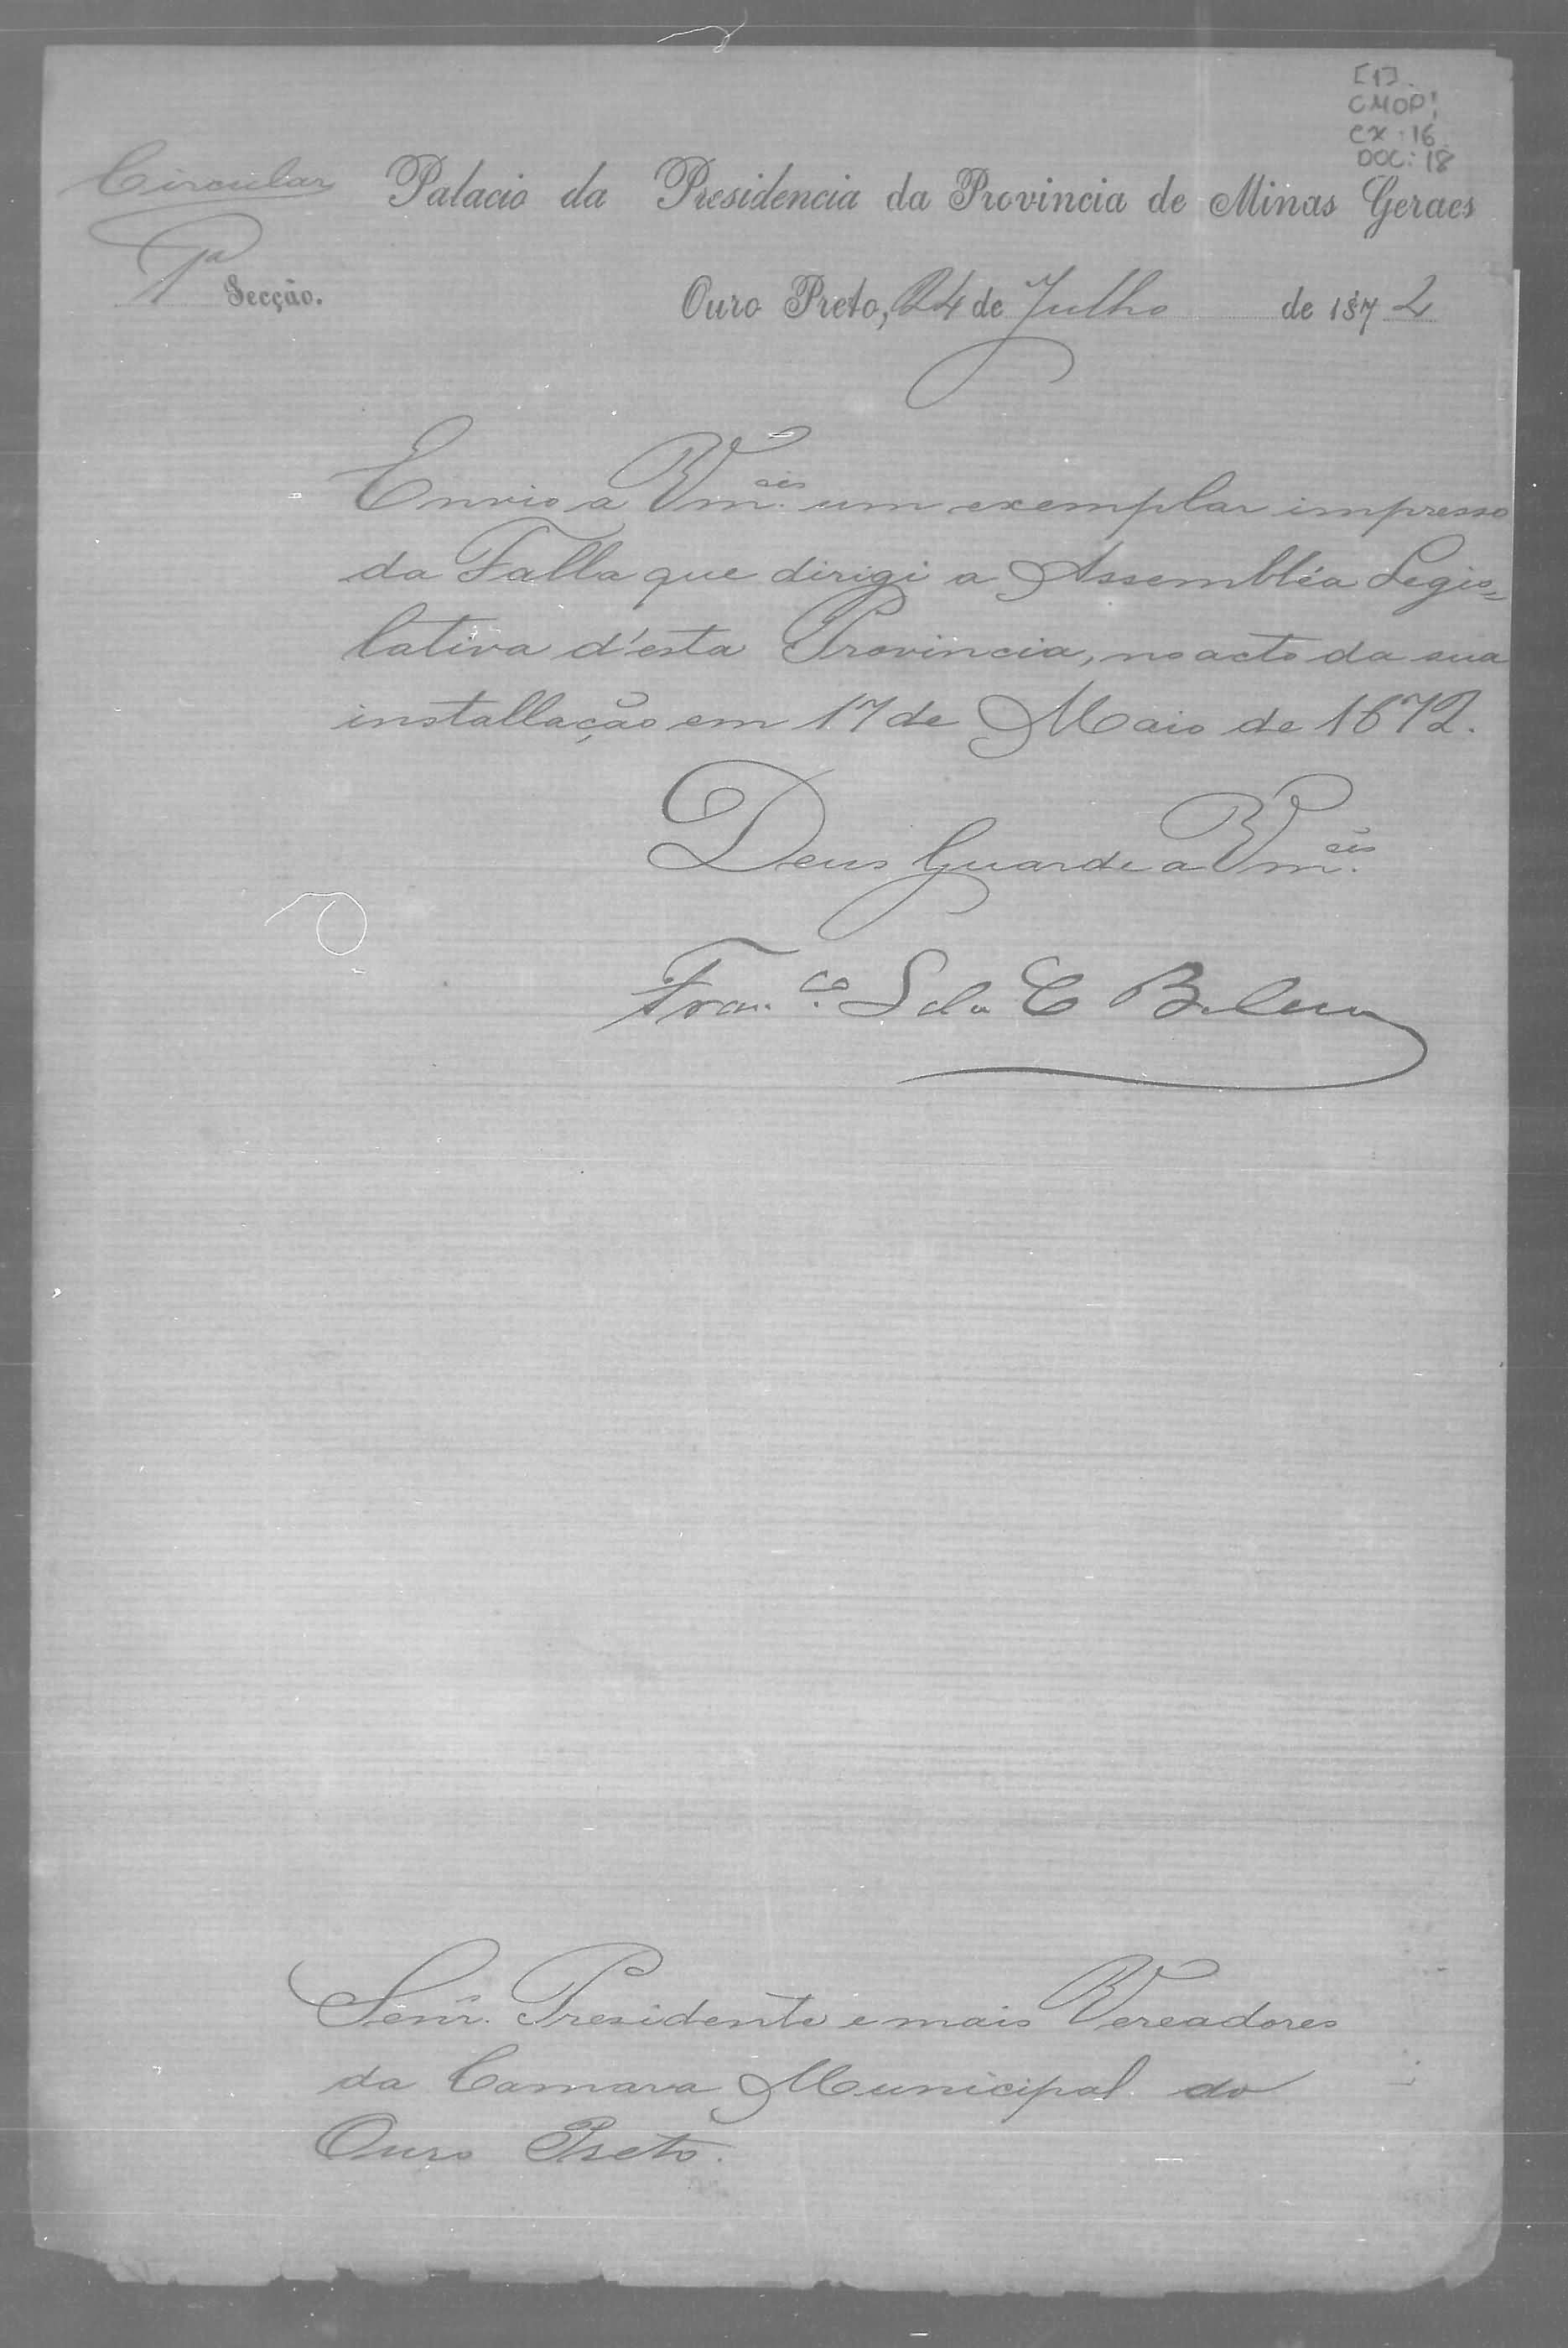 [1].
CMOP!
CX: 16
DOC: 18
Circular
Palacio da Presidencia da Provincia de Minas Geraes
1ª Secção.
Ouro Preto, 24 de Julho de 1872
Envio a Vm.ces um exemplar impresso
da Falla que dirigi a Assembléa Legis=
lativa d'esta Provincia, no acto da sua
installação em 17 de Maio de 1872.
Deus Guarde a Vm.ces
Fran.co L da C B
Senr. Presidente e mais Vereadores
da Camara Municipal do
Ouro Preto.